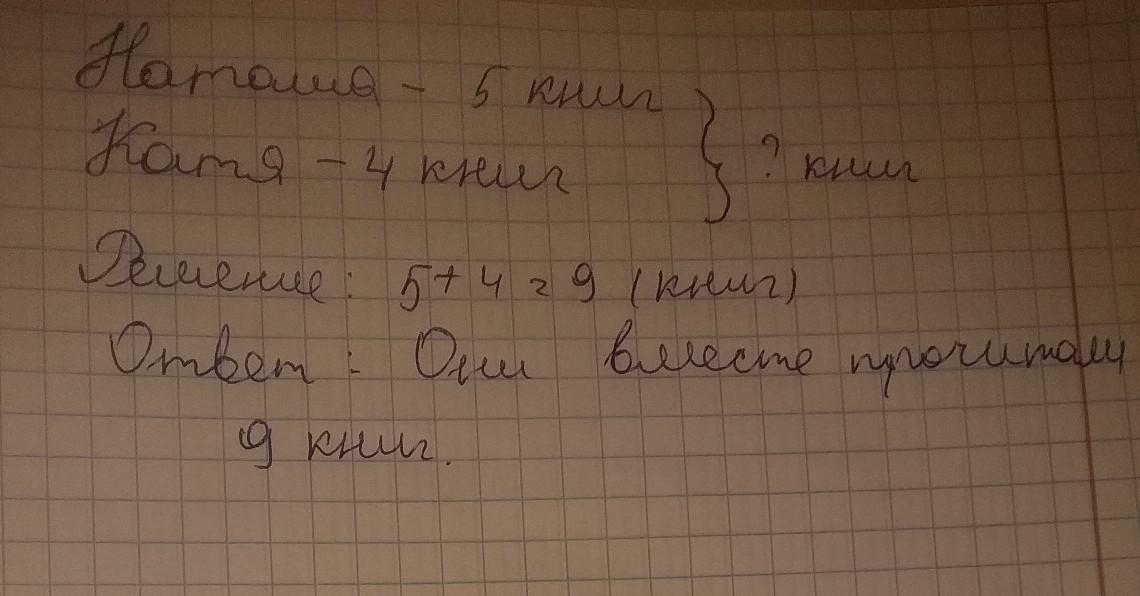 Наташа - 5 книг
Катя - 4 книг } ? книг
Решение: 5 + 4 = 9 (книг)
Ответ: Они вместе прочитали
9 книг.